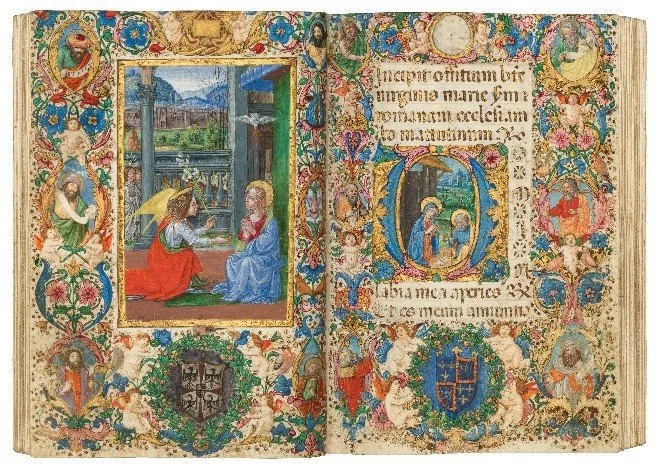 Incipit offitium bte
virginis marie sm
romanam ecclesiam
matutinum
D
labia mea aperies
Et os meum annunti